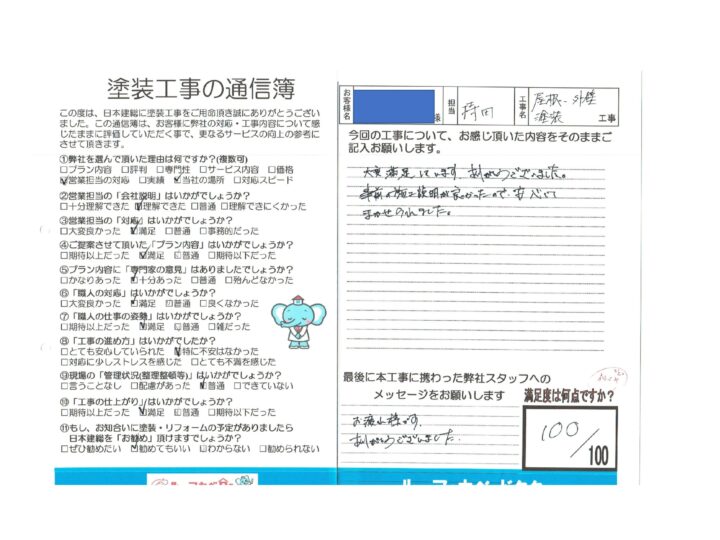 塗装工事の通信簿
この度は、日本建総に塗装工事をご用命頂き誠にありがとうござい
ました。この通信簿は、お客様に弊社の対応・工事内容について感
じたままに評価していただく事で、更なるサービスの向上の参考に
させて頂きます。
①弊社を選んで頂いた理由は何ですか?(複数可)
□プラン内容 □評判 □専門性 □サービス内容 □価格
☑営業担当の対応 □実績 ☑当社の場所 □対応スピード
②営業担当の「会社説明」はいかがでしょうか?
□十分理解できた ☑理解できた □普通 □理解できにくかった
③営業担当の「対応」はいかがでしょうか?
□大変良かった ☑満足 □普通 □事務的だった
④ご提案させて頂いた「プラン内容」はいかがでしょうか?
□期待以上だった ☑満足 □普通 □期待以下だった
⑤プラン内容に「専門家の意見」はありましたでしょうか?
□かなりあった ☑十分あった □普通 □殆んどなかった
⑥「職人の対応」はいかがでしょうか?
□大変良かった ☑満足 □普通 □良くなかった
⑦「職人の仕事の姿勢」はいかがでしょうか?
□期待以上だった ☑満足 □普通 □雑だった
⑧「工事の進め方」はいかがでしたか?
□とても安心していられた ☑特に不安はなかった
□対応に少しストレスを感じた □とても不満を感じた
⑨現場の「管理状況(整理整頓等)」はいかがでしょうか?
□言うことなし □配慮があった ☑普通 □できていない
⑩「工事の仕上がり」はいかがでしょうか?
□期待以上だった ☑満足 □普通 □期待以下だった
⑪もし、お知合いに塗装・リフォームの予定がありましたら
日本建総を「お勧め」頂けますでしょうか?
□ぜひ勧めたい ☑勧めてもいい □わからない □勧められない
お客様名 様 担当 持田 工事名 屋根・外壁塗装 工事
今回の工事について、お感じ頂いた内容をそのままご
記入お願いします。
大変満足しています。ありがとうございました。
事前の施工説明が良かったので、安心して
まかせられました。
最後に本工事に携わった弊社スタッフへの
メッセージをお願いします
お疲れ様です。
ありがとうございました。
満足度は何点ですか?
100/100